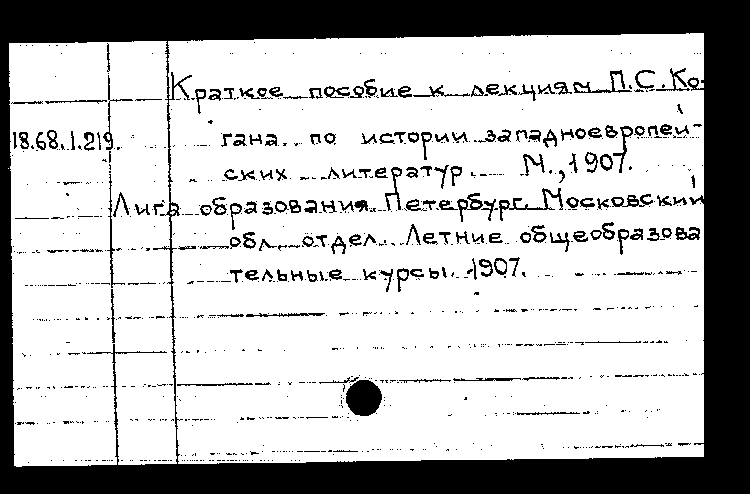 Краткое пособие к лекциям П.С. Ко-
18.68.1.219. гана по истории западноевропей-
ских литератур. М., 1907.
Лига образования. Петербург. Московский
обл. отдел. Летние общеобразова
тельные курсы. 1907.